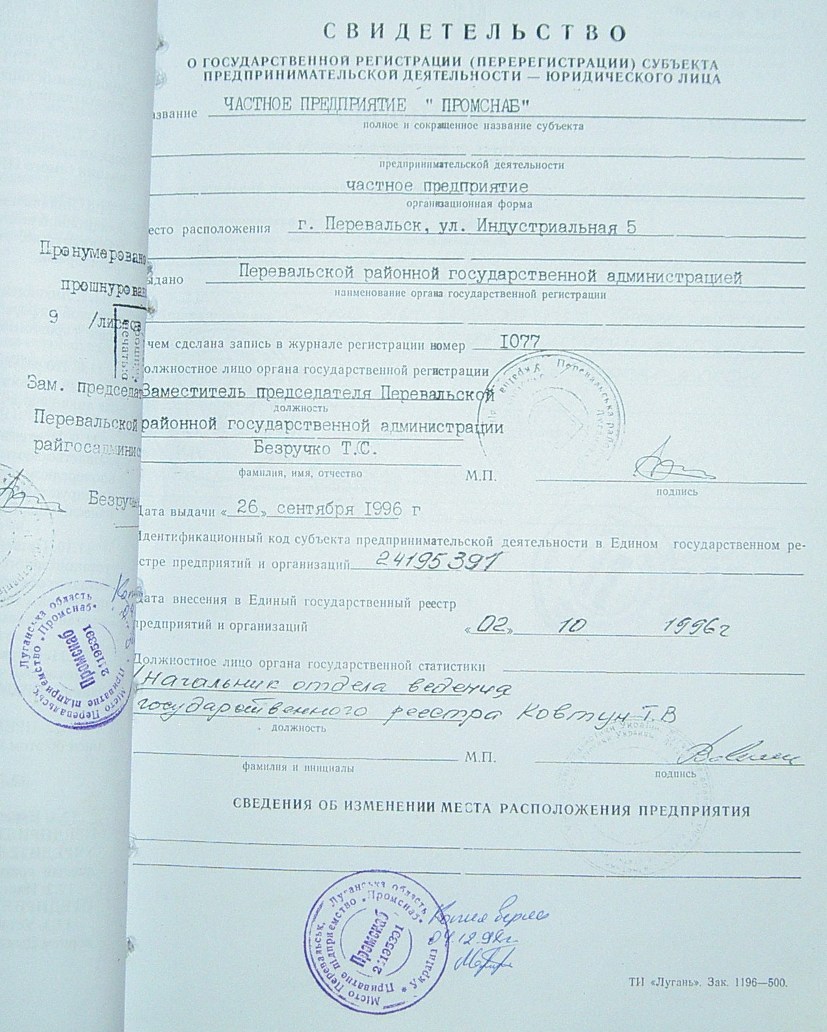 СВИДЕТЕЛЬСТВО
О ГОСУДАРСТВЕННОЙ РЕГИСТРАЦИИ (ПЕРЕРЕГИСТРАЦИИ) СУБЪЕКТА
ПРЕДПРИНИМАТЕЛЬСКОЙ ДЕЯТЕЛЬНОСТИ — ЮРИДИЧЕСКОГО ЛИЦА
азвание ЧАСТНОЕ ПРЕДПРИЯТИЕ " ПРОМСНАБ"
полное и сокращенное название субъекта
предпринимательской деятельности
частное предприятие
организационная форма
есто расположения г. Перевальск, ул. Индустриальная 5
ыдано Перевальской районной государственной администрацией
наименование органа государственной регистрации
чем сделана запись в журнале регистрации номер 1077
олжностное лицо органа государственной регистрации
Заместитель председателя Перевальской
должность
районной государственной администрации
Безручко Т.С.
фамилия, имя, отчество М.П.
подпись
Дата выдачи «26» сентября 1996 г
Идентификационный код субъекта предпринимательской деятельности в Едином государственном ре-
стре предприятий и организаций 24195391
Дата внесения в Единый государственный реестр
предприятий и организаций «02» 10 1996г
Должностное лицо органа государственной статистики
Начальник отдела ведения
государственного реестра Ковтун Т.В
должность
М.П.
фамилия и инициалы
подпись
СВЕДЕНИЯ ОБ ИЗМЕНЕНИИ МЕСТА РАСПОЛОЖЕНИЯ ПРЕДПРИЯТИЯ
Місто Перевальськ, Луганська область
Приватне підприємство «Промснаб»
Промснаб
24195391
Україна
Копия верна
ТИ «Лугань». Зак. 1196—500.
Пронумеровано
прошнурован
9 /листов
Зам. председат
Перевальской
райгосадминис
Безруч
Луганська область
Місто Перевальськ,
Приватне підприємство «Промснаб»
Промснаб
24195391